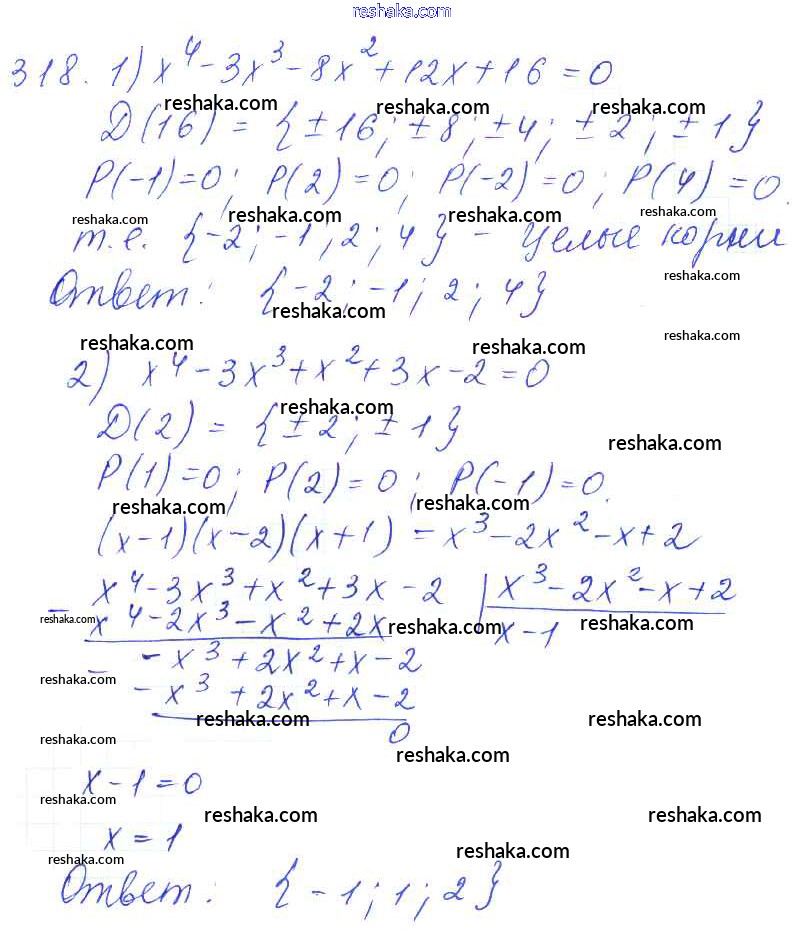 reshaka.com
318. 1) x⁴ - 3x³ - 8x² + 12x + 16 = 0
reshaka.com reshaka.com reshaka.com
D(16) = {±16; ±8; ±4; ±2; ±1}
P(-1)=0; P(2)=0; P(-2)=0; P(4)=0.
reshaka.com reshaka.com reshaka.com reshaka.com
т.е. {-2; -1; 2; 4} - целые корни
reshaka.com
Ответ: {-2; -1; 2; 4}
reshaka.com
reshaka.com reshaka.com reshaka.com
2) x⁴ - 3x³ + x² + 3x - 2 = 0
reshaka.com
D(2) = {±2; ±1}
reshaka.com
P(1)=0; P(2)=0; P(-1)=0.
reshaka.com reshaka.com
(x-1)(x-2)(x+1) = x³ - 2x² - x + 2
x⁴ - 3x³ + x² + 3x - 2 | x³ - 2x² - x + 2
- x⁴ - 2x³ - x² + 2x x - 1
reshaka.com reshaka.com reshaka.com
- - x³ + 2x² + x - 2
reshaka.com
- x³ + 2x² + x - 2
reshaka.com reshaka.com
0
reshaka.com
reshaka.com
x - 1 = 0
reshaka.com
reshaka.com reshaka.com
x = 1
reshaka.com reshaka.com
Ответ: {-1; 1; 2}